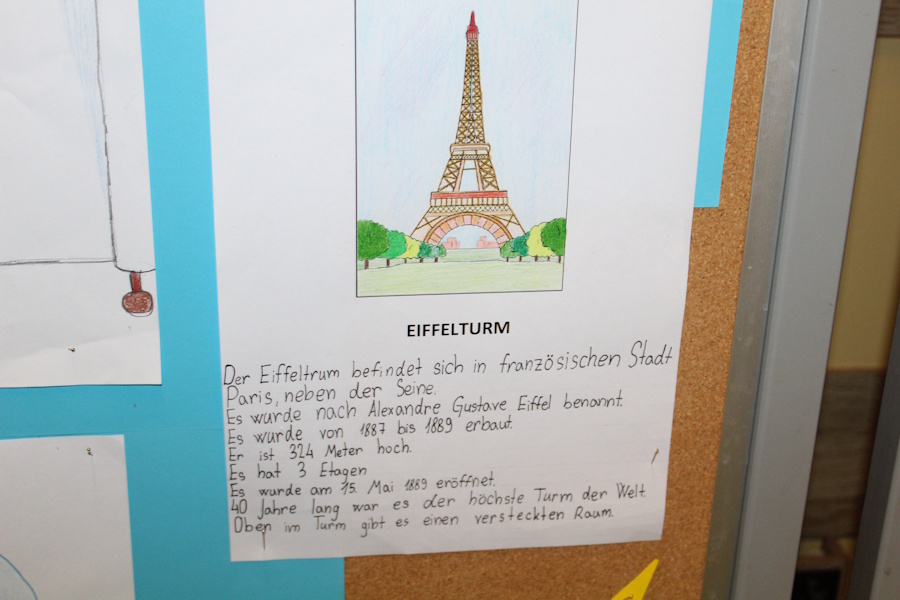 EIFFELTURM
Der Eiffeltrum befindet sich in französischen Stadt
Paris, neben der Seine.
Es wurde nach Alexandre Gustave Eiffel benannt.
Es wurde von 1887 bis 1889 erbaut.
Er ist 324 Meter hoch.
Es hat 3 Etagen
Es wurde am 15. Mai 1889 eröffnet.
40 Jahre lang war es der höchste Turm der Welt.
Oben im Turm gibt es einen versteckten Raum.